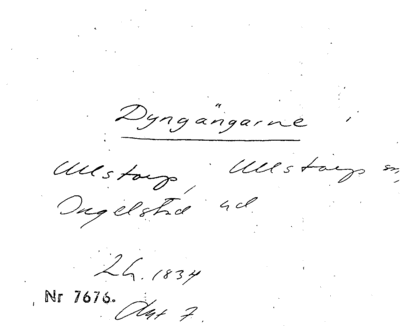 Dyngängarne
Ullstorp, Ullstorp sn,
Ingelstad hd
Lh. 1834
Nr 7676.
Akt 7.